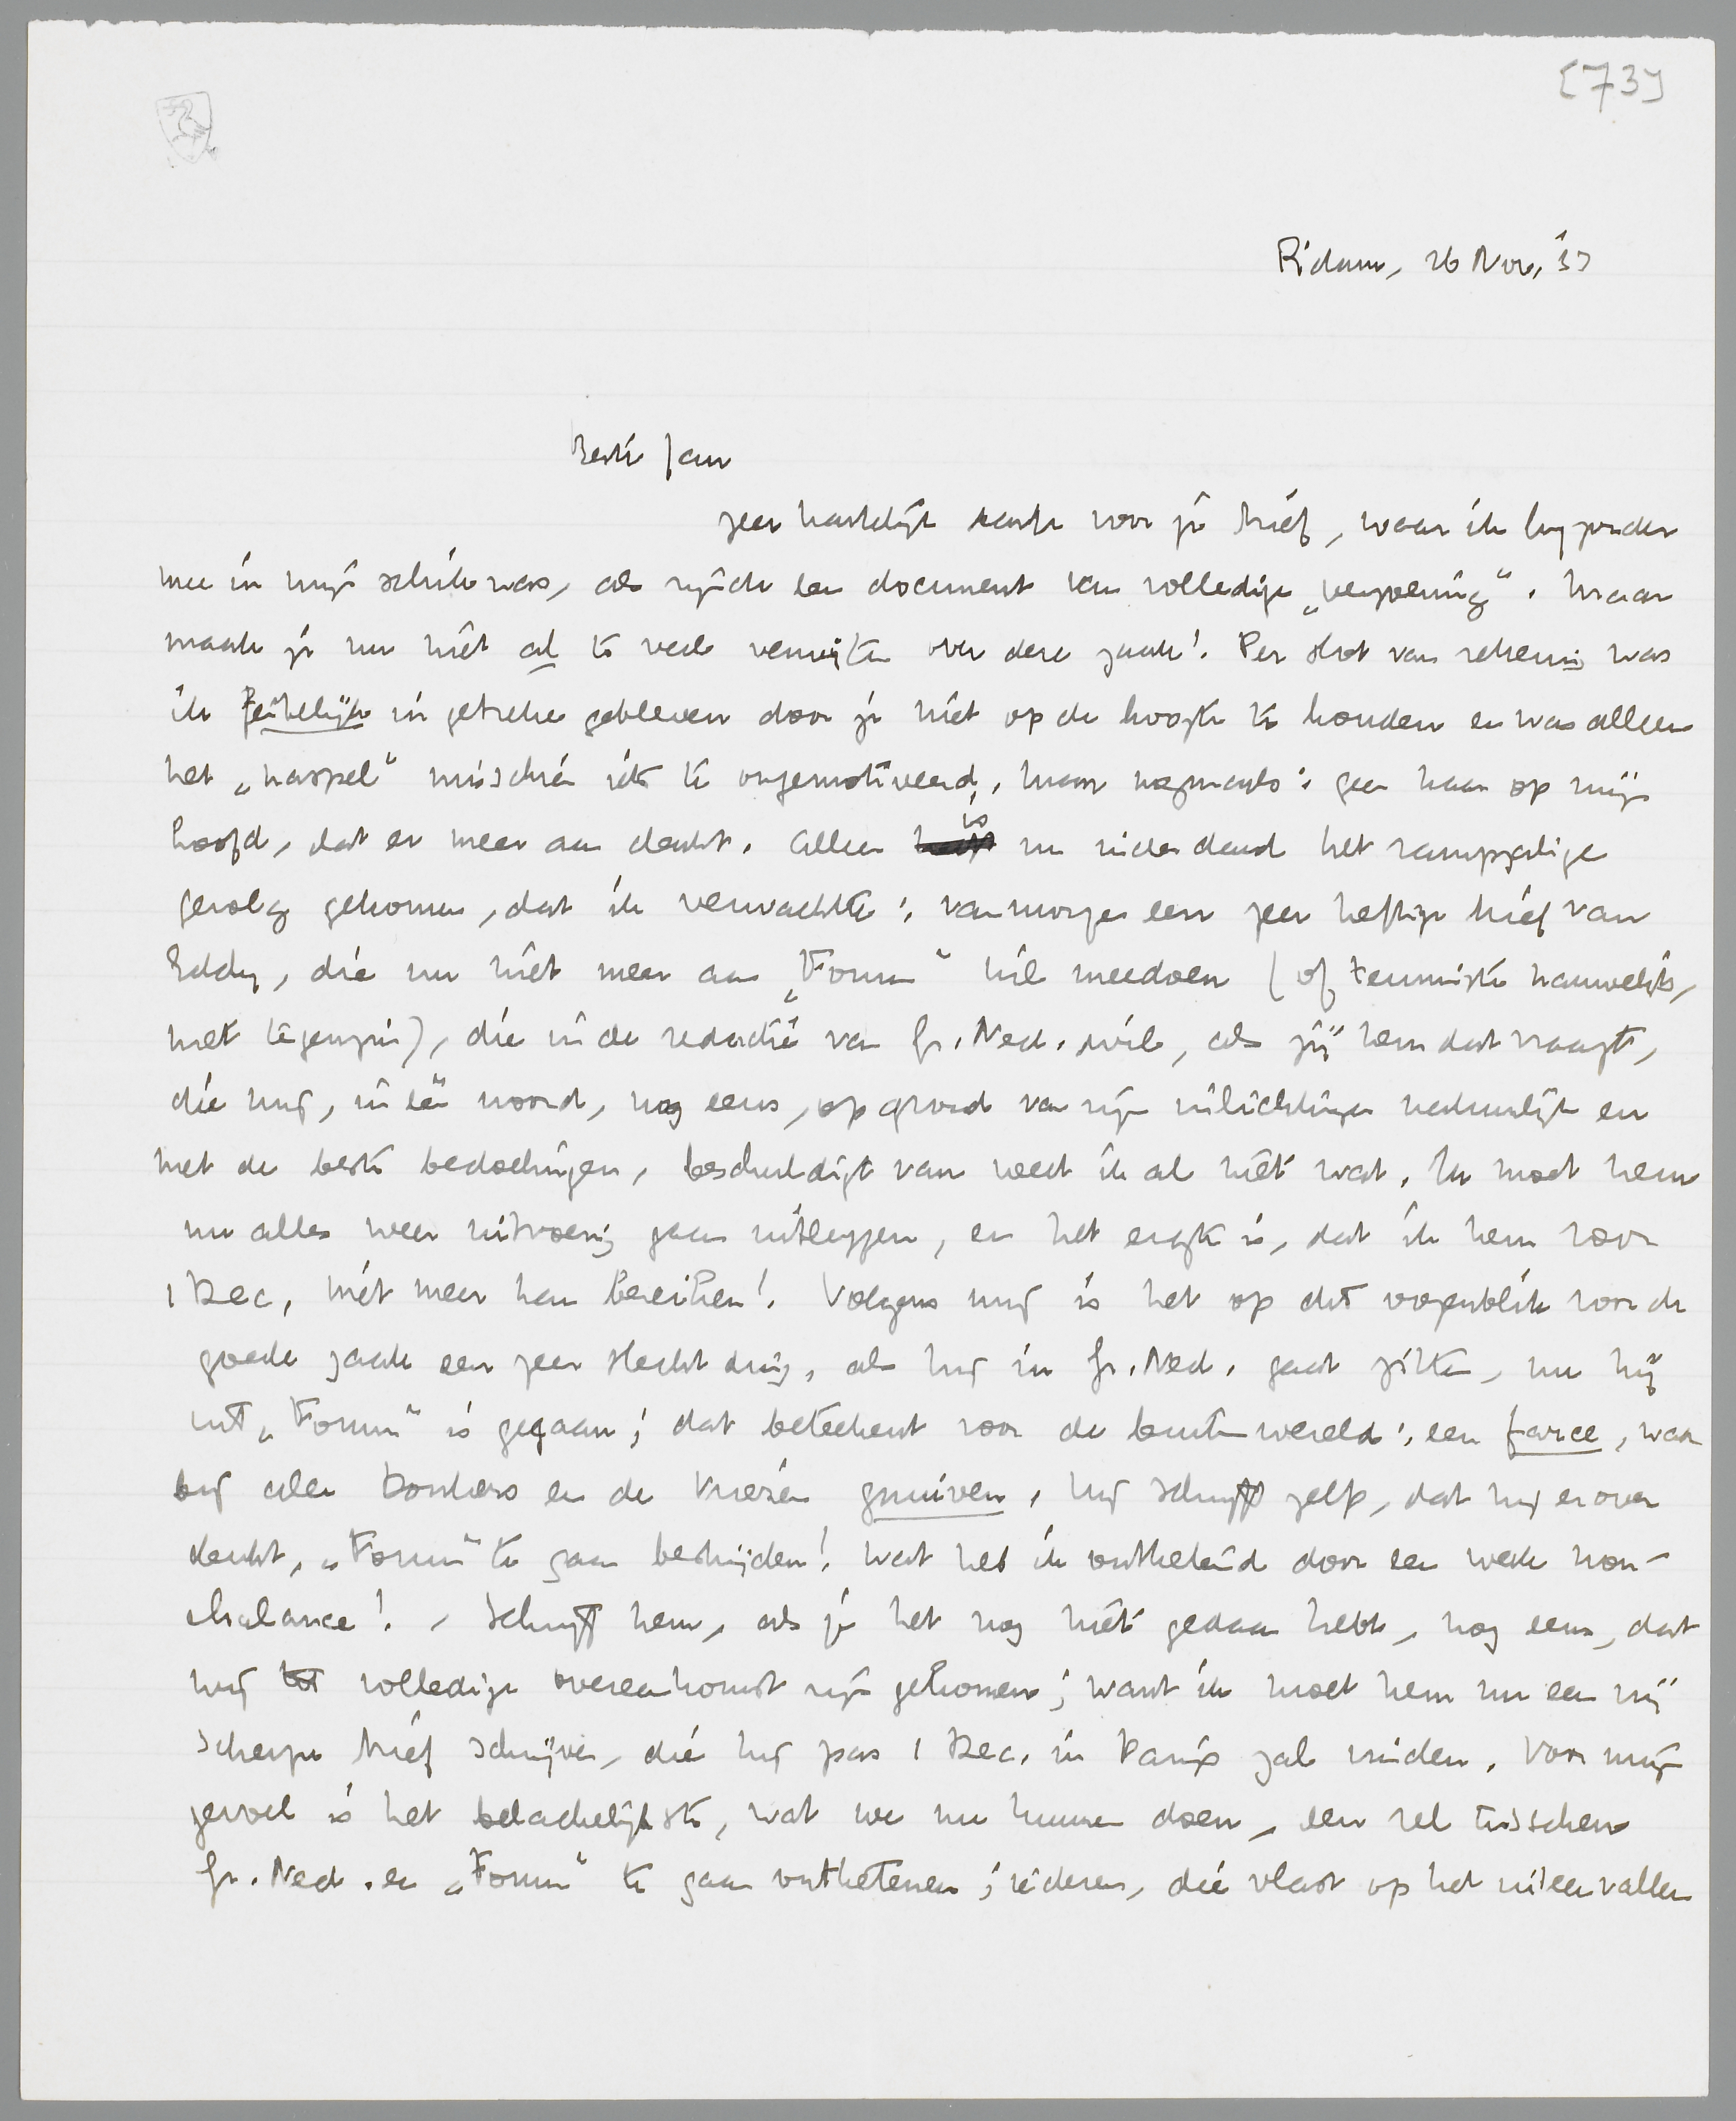 [73]
R'dam, 26 Nov. '33
Beste Jan
zeer hartelijk dank voor je brief, waar ik bijzonder
mee in mijn schik was, als zijnde een document van volledige „verzoening”. Maar
maak je nu niet al te veel verwijten over deze zaak! Per slot van rekening was
ik feitelijk in gebreke gebleven door je niet op de hoogte te houden en was alleen
het „naspel” misschien iets te ongemotiveerd, maar nogmaals: geen haar op mijn
hoofd, dat er meer aan denkt. Alleen is nu inderdaad het rampzalige
gevolg gekomen, dat ik verwachtte: vanmorgen een zeer heftige brief van
Eddy, die nu niet meer aan „Forum” wil meedoen (of tenminste nauwelijks,
met tegenzin), die in de redactie van Gr. Ned. wil, als jij hem dat vraagt,
die mij, in één woord, nog eens, op grond van zijn inlichtingen natuurlijk en
met de beste bedoelingen, beschuldigt van weet ik al niet wat. Ik moet hem
nu alles weer uitvoerig gaan uitleggen, en het ergste is, dat ik hem voor
1 Dec. niet meer kan bereiken! Volgens mij is het op dit oogenblik voor de
goede zaak een zeer slecht ding, als hij in Gr. Ned. gaat zitten, nu hij
uit „Forum” is gegaan; dat beteekent voor de buitenwereld: een farce, waar
bij alle Donkers en de Vriezen gnuiven. Hij schrijft zelf, dat hij erover
denkt, „Forum” te gaan bestrijden! Wat heb ik ontketend door een week non-
chalance! - Schrijf hem, als je het nog niet gedaan hebt, nog eens, dat
wij tot volledige overeenkomst zijn gekomen; want ik moet hem nu een vrij
scherpe brief schrijven, die hij pas 1 Dec. in Parijs zal vinden. Voor mijn
gevoel is het belachelijkste, wat we nu kunnen doen, een rel tusschen
Gr. Ned. en „Forum” te gaan ontketenen; iedereen, die vlast op het uiteenvallen